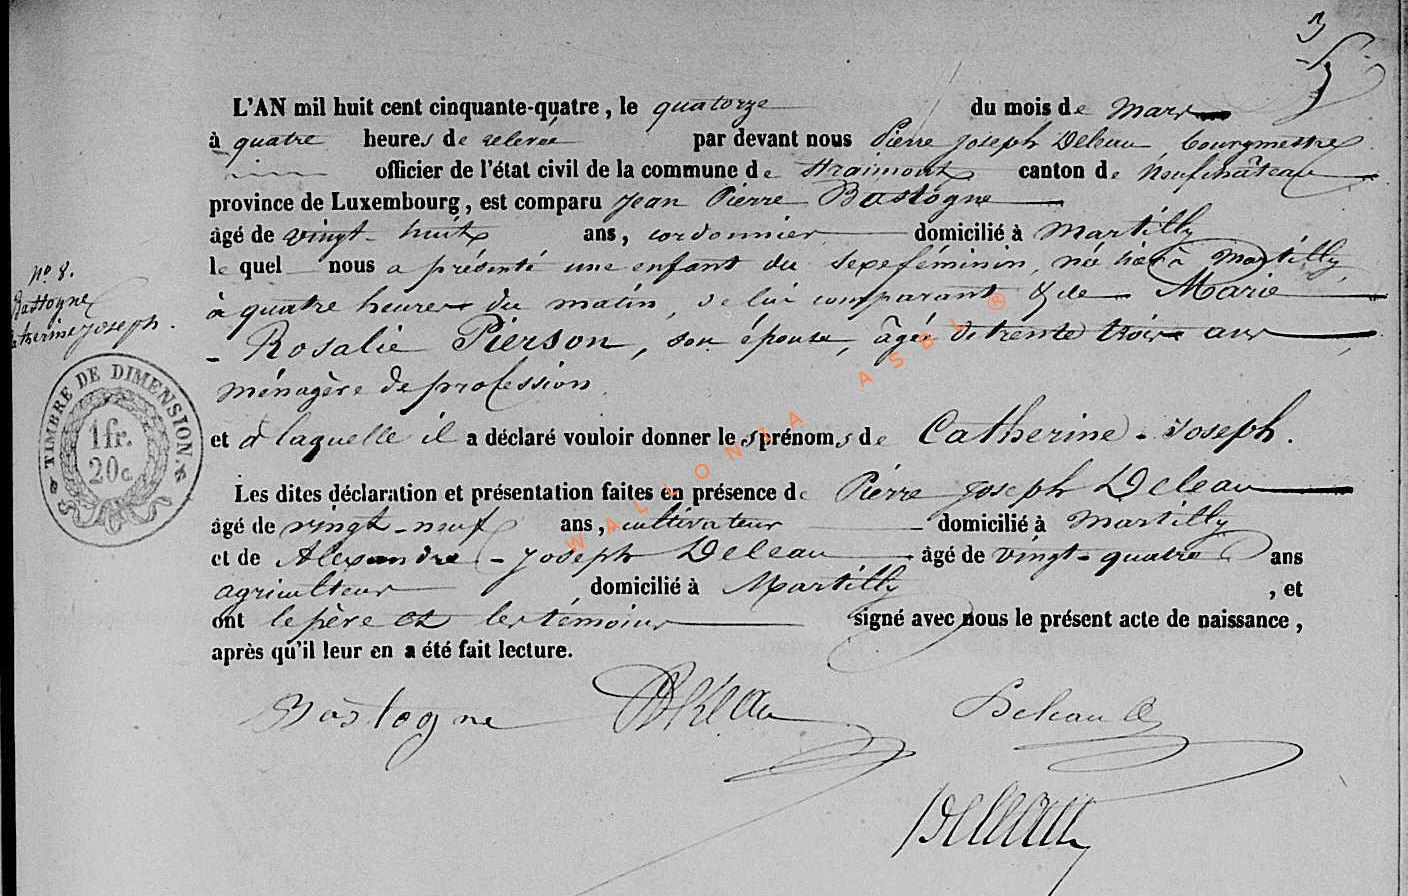 3
5
L'AN mil huit cent cinquante-quatre, le quatorze du mois de Mars
à quatre heures de relevée par devant nous Pierre Joseph Deleau, bourgmestre
officier de l'état civil de la commune de Straimont canton de Neufchâteau
province de Luxembourg, est comparu Jean Pierre Bastogne
âgé de vingt-huit ans, cordonnier domicilié à Martilly
le quel nous a présenté une enfant du sexe féminin, née hier à Martilly,
à quatre heures du matin, de lui comparant & de Marie
- Rosalie Pierson, son épouse, âgée de trente trois ans
ménagère de profession.
et à laquelle il a déclaré vouloir donner les prénoms de Catherine-Joseph.
Les dites déclaration et présentation faites en présence de Pierre Joseph Deleau
âgé de vingt-neuf ans, cultivateur domicilié à Martilly
et de Alexandre-Joseph Deleau âgé de vingt-quatre ans
agriculteur domicilié à Martilly, et
ont le père et les témoins signé avec nous le présent acte de naissance,
après qu'il leur en a été fait lecture.
Bastogne Deleau Deleau
Deleau
N° 8.
Bastogne
Catherine Joseph.
TIMBRE DE DIMENSION.
1 fr.
20 c
WALLONIA ASBL ®